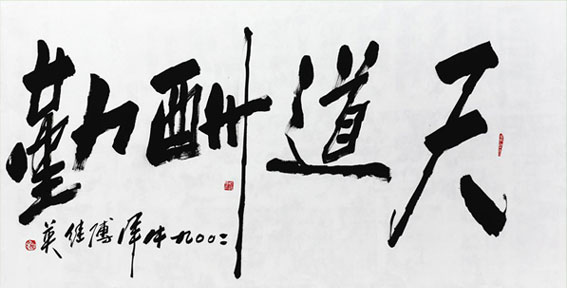 天道酬勤
二〇〇九年佳英